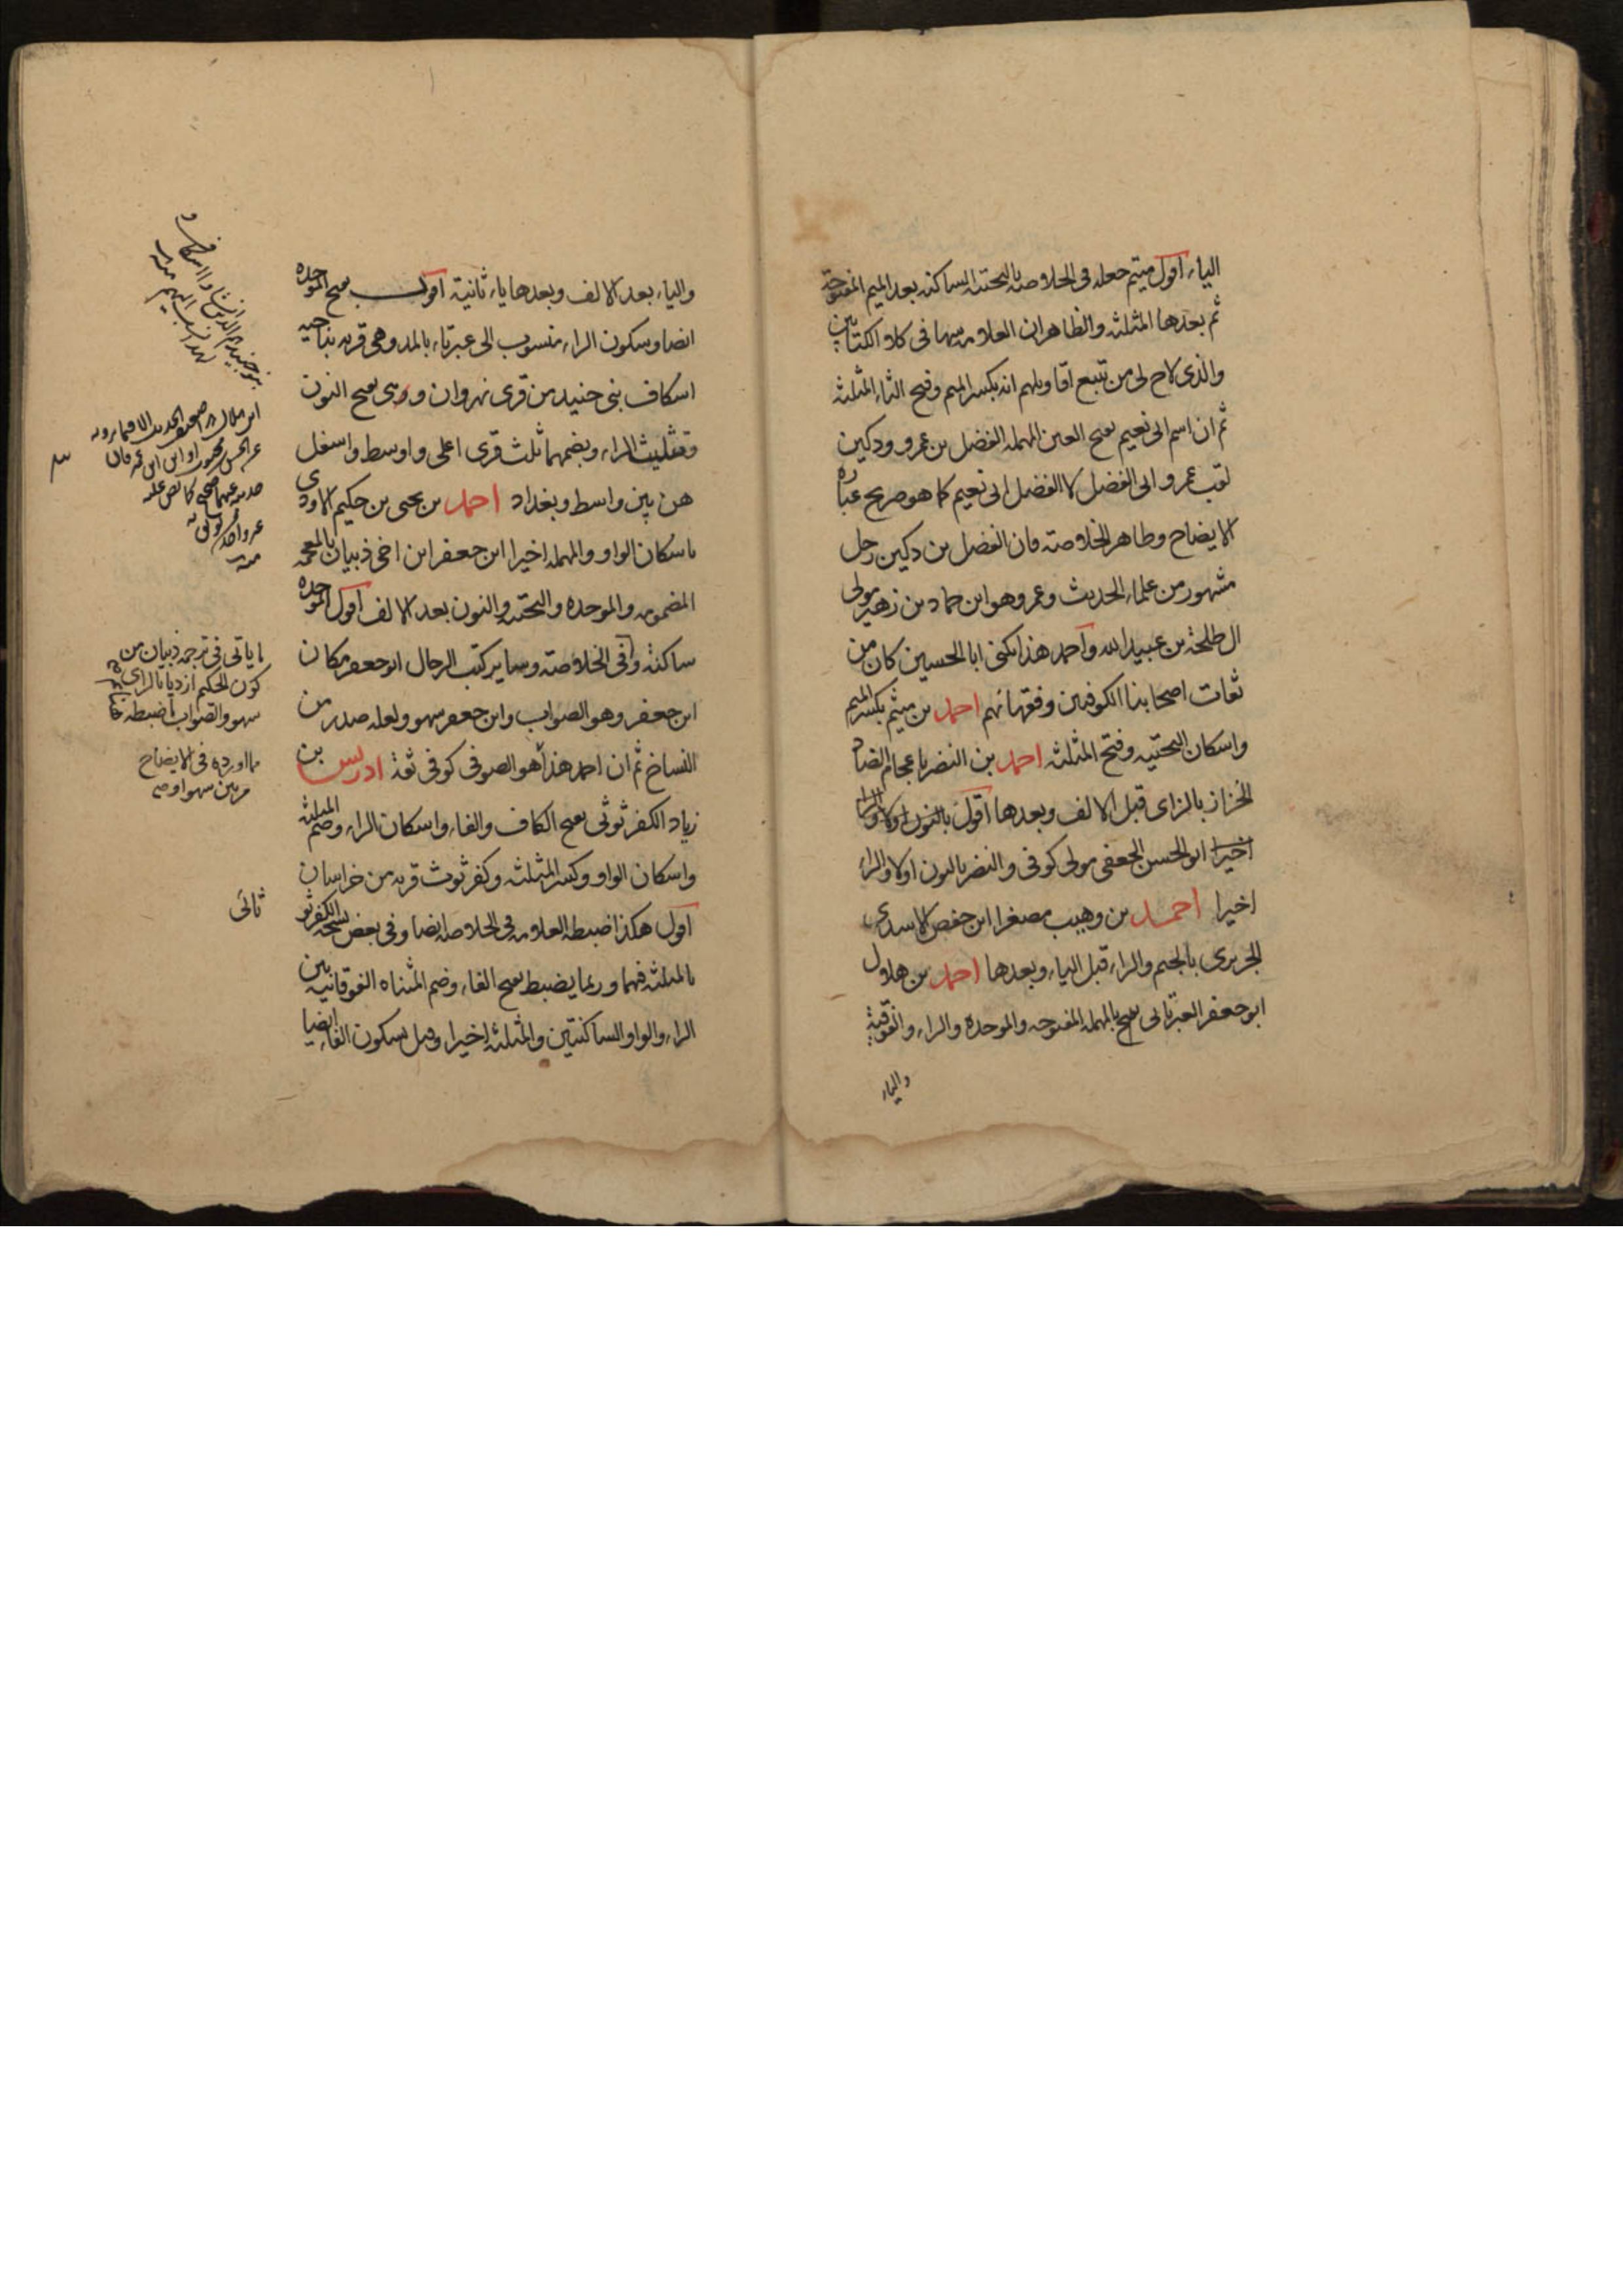 الياء اقول ميثم جعله فى الخلاصة بالتحتية الساكنه بعد الميم المفتوحة
ثم بعدها المثلثه والظاهر ان العلامه سها فى كلا الكتابين
والذى لاح لى من تتبع اقاويلهم انه بكسر الميم وفتح الثاء المثلثه
ثم ان اسم ابى نعيم بفتح العين المهمله الفضل بن عمرو ودكين
لقب عمرو ابى الفضل لا الفضل ابى نعيم كما هو صريح عبارة
الايضاح وظاهر الخلاصة فان الفضل بن دكين رجل
مشهور من علماء الحديث وعمرو هو ابن حماد بن زهير مولى
ال طلحة بن عبيد الله واحمد هذا يكنى ابا الحسين كان من
ثقات اصحابنا الكوفيين وفقهائهم احمد بن ميثم بكسر الميم
واسكان التحتيه وفتح المثلثه احمد بن النضر باعجام الضاد
الخزاز بالزاى قبل الالف وبعدها اقول بالنون اولا والراء
اخيرا ابو الحسن الجعفى مولى كوفى والنضر بالنون اولا والراء
اخيرا احمد بن وهيب مصغرا ابن حفص الاسدى
الجريرى بالجيم والراء قبل الياء وبعدها احمد بن هلال
ابو جعفر العبرتائى بفتح المهمله المفتوحه والموحده والراء والفوقية
والياء
والياء بعد الالف وبعدها ياء ثانية اقول بفتح الموحده
ايضا وسكون الراء منسوب الى عبرتاء بالمد وهى قريه بناحيه
اسكاف بنى جنيد من قرى نهروان وهى بفتح النون
وتثليث الراء وبضمهما ثلث قرى اعلى واوسط واسفل
هن بين واسط وبغداد احمد بن يحيى بن حكيم الاودى
باسكان الواو والمهمله اخيرا ابن جعفر ابن اخى ذبيان بالمعجمه
المضمومه والموحده والتحتيه والنون بعد الالف اقول الموحده
ساكنة وفى الخلاصة وساير كتب الرجال ابو جعفر مكان
ابن جعفر وهو الصواب وابن جعفر سهو ولعله صدر من
النساخ ثم ان احمد هذا هو الصوفى كوفى ثقة ادريس بن
زياد الكفرثوثى بفتح الكاف والفاء واسكان الراء وضم المثلثه
واسكان الواو وكسر المثلثه وكفرثوث قريه من خراسان
اقول هكذا ضبطه العلامه فى الخلاصه ايضا وفى بعض نسخه الكفرثو
ثائى
بالمثلثه فيهما وربما يضبط بفتح الفاء وضم المثناه الفوقانيه بين
الراء والواو الساكنتين والمثلثه اخيرا وقيل بسكون الفاء ايضا
ما ياتى فى ترجمة ذبيان من
كون الحكيم ازديا بالزاى
سهو والصواب ما ضبطه هنا
مما اورده فى الايضاح